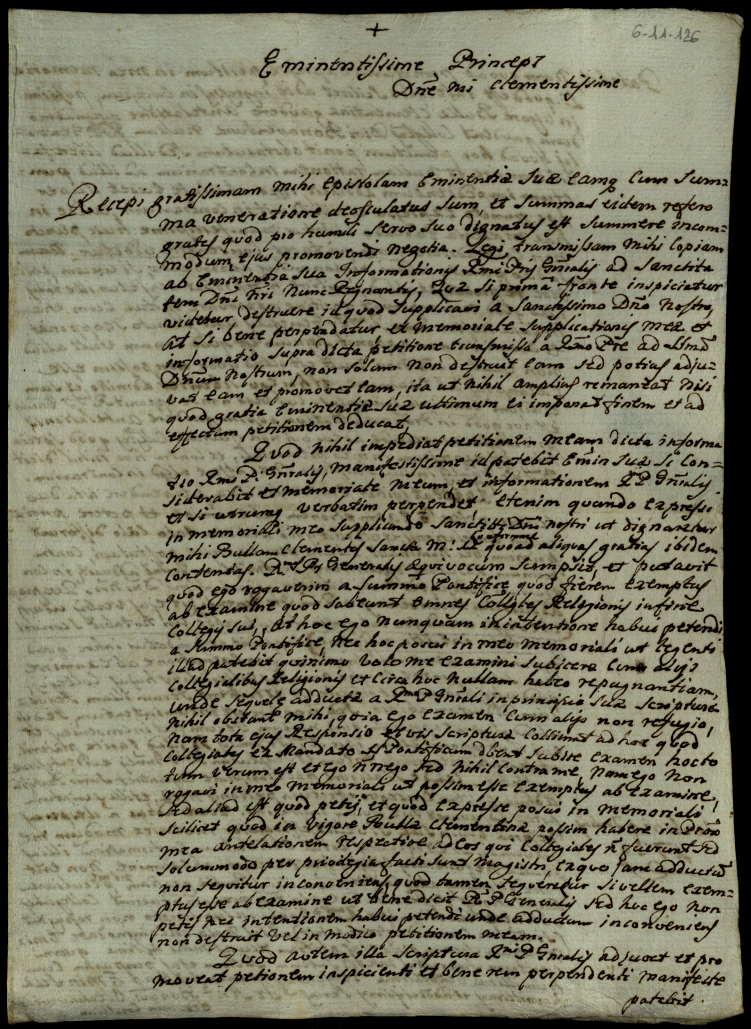 +
6-11-126
Eminentissime Princeps
Dñe mi clementissime
Recepi gratissimam mihi epistolam Eminentiæ Suæ eamq cum Sum=
ma veneratione deosculatus sum, et summas eidem refero
grates quod pro humili servo suo dignatus est summere incom=
modum ejus promovendi negotia. Legi transmissam mihi copiam
ab Eminentia sua Informationis Rmi Pris Gñralis ad Sanctita
tem Dñi Ñri Nunc Regnantis, quæ si primâ fronte inspiciatur
videtur destruere id quod supplicavi a Sanctissimo Dño Nostro,
at si bene perpendatur et memoriale supplicationis meæ et
informatio supradicta petitione transmissa a Rmo Pre ad
Dñum Nostrum, non solum non destruit eam sed potius adju=
vat eam et promovet eam, ita ut nihil amplius remaneat nisi
quod gratia Eminentiæ suæ ultimum ei imponat finem et ad
effectum petitionem deducat,
Quod nihil impediat petitionem meam dicta informa
tio Rmi P. Gñralis, manifestissime id patebit Emin Suæ si con=
siderabit et memoriale meum, et informationem R P Gñralis
et si utrumq verbatim perpendet, etenim quando expresse
in memoriali meo supplicando Sanctitati Dñi nostri ut dignaretur
mihi Bullam Clementis Sanctæ M: confirmare quoad aliquas gratias ibidem
contentas. Generalis æquivocum sumpsit, et putavit
quod ego rogaverim a Summo Pontifice quod fierem exemptus
ab examine quod subeunt omnes Religionis in fine
Collegij sui, At hoc ego nunquam in intentione habui petendi
a Summo Pontifice, nec hoc posui in meo memoriali ut legenti
illud patebit quinimo volo me examini subjicere cum alijs
Collegialibus Religionis et circa hoc nullam habeo repugnantiam,
unde sequelæ adductæ a Rmo P Gñrali in principio suæ scripturæ
nihil obstant mihi, quia ego examen cum alijs non refugio,
nam tota ejus responsio et vis scripturæ collimat ad hoc quod
Collegiales ex mandato Pontificum dbent subire examen hoc to
tum verum est et ego ñ nego sed nihil contra me, nam ego non
rogavi in meo memoriali ut possim esse exemptus ab examine,
sed aliud est quod petij, et quod expresse posui in memoriali
scilicet quod in vigore Bullæ Clementinæ possim habere in
mea antelationem respective ad eos qui Collegiales ñ fuerunt sed
solummodo per privilegia facti sunt magistri, ex quo jam adductum
non sequitur inconveniens, quod tamen sequeretur si vellem exem=
ptus esse ab examine ut bene dicit R. P. Generalis sed hoc ego non
petij nec intentionem habui petendi unde adductum inconveniens
non destruit vel in modico petitionem meam.
Quod autem illa scriptura Rmi P Gñralis adjuvet et pro
moveat petionem inspicienti et bene rem perpendenti manifeste
patebit.